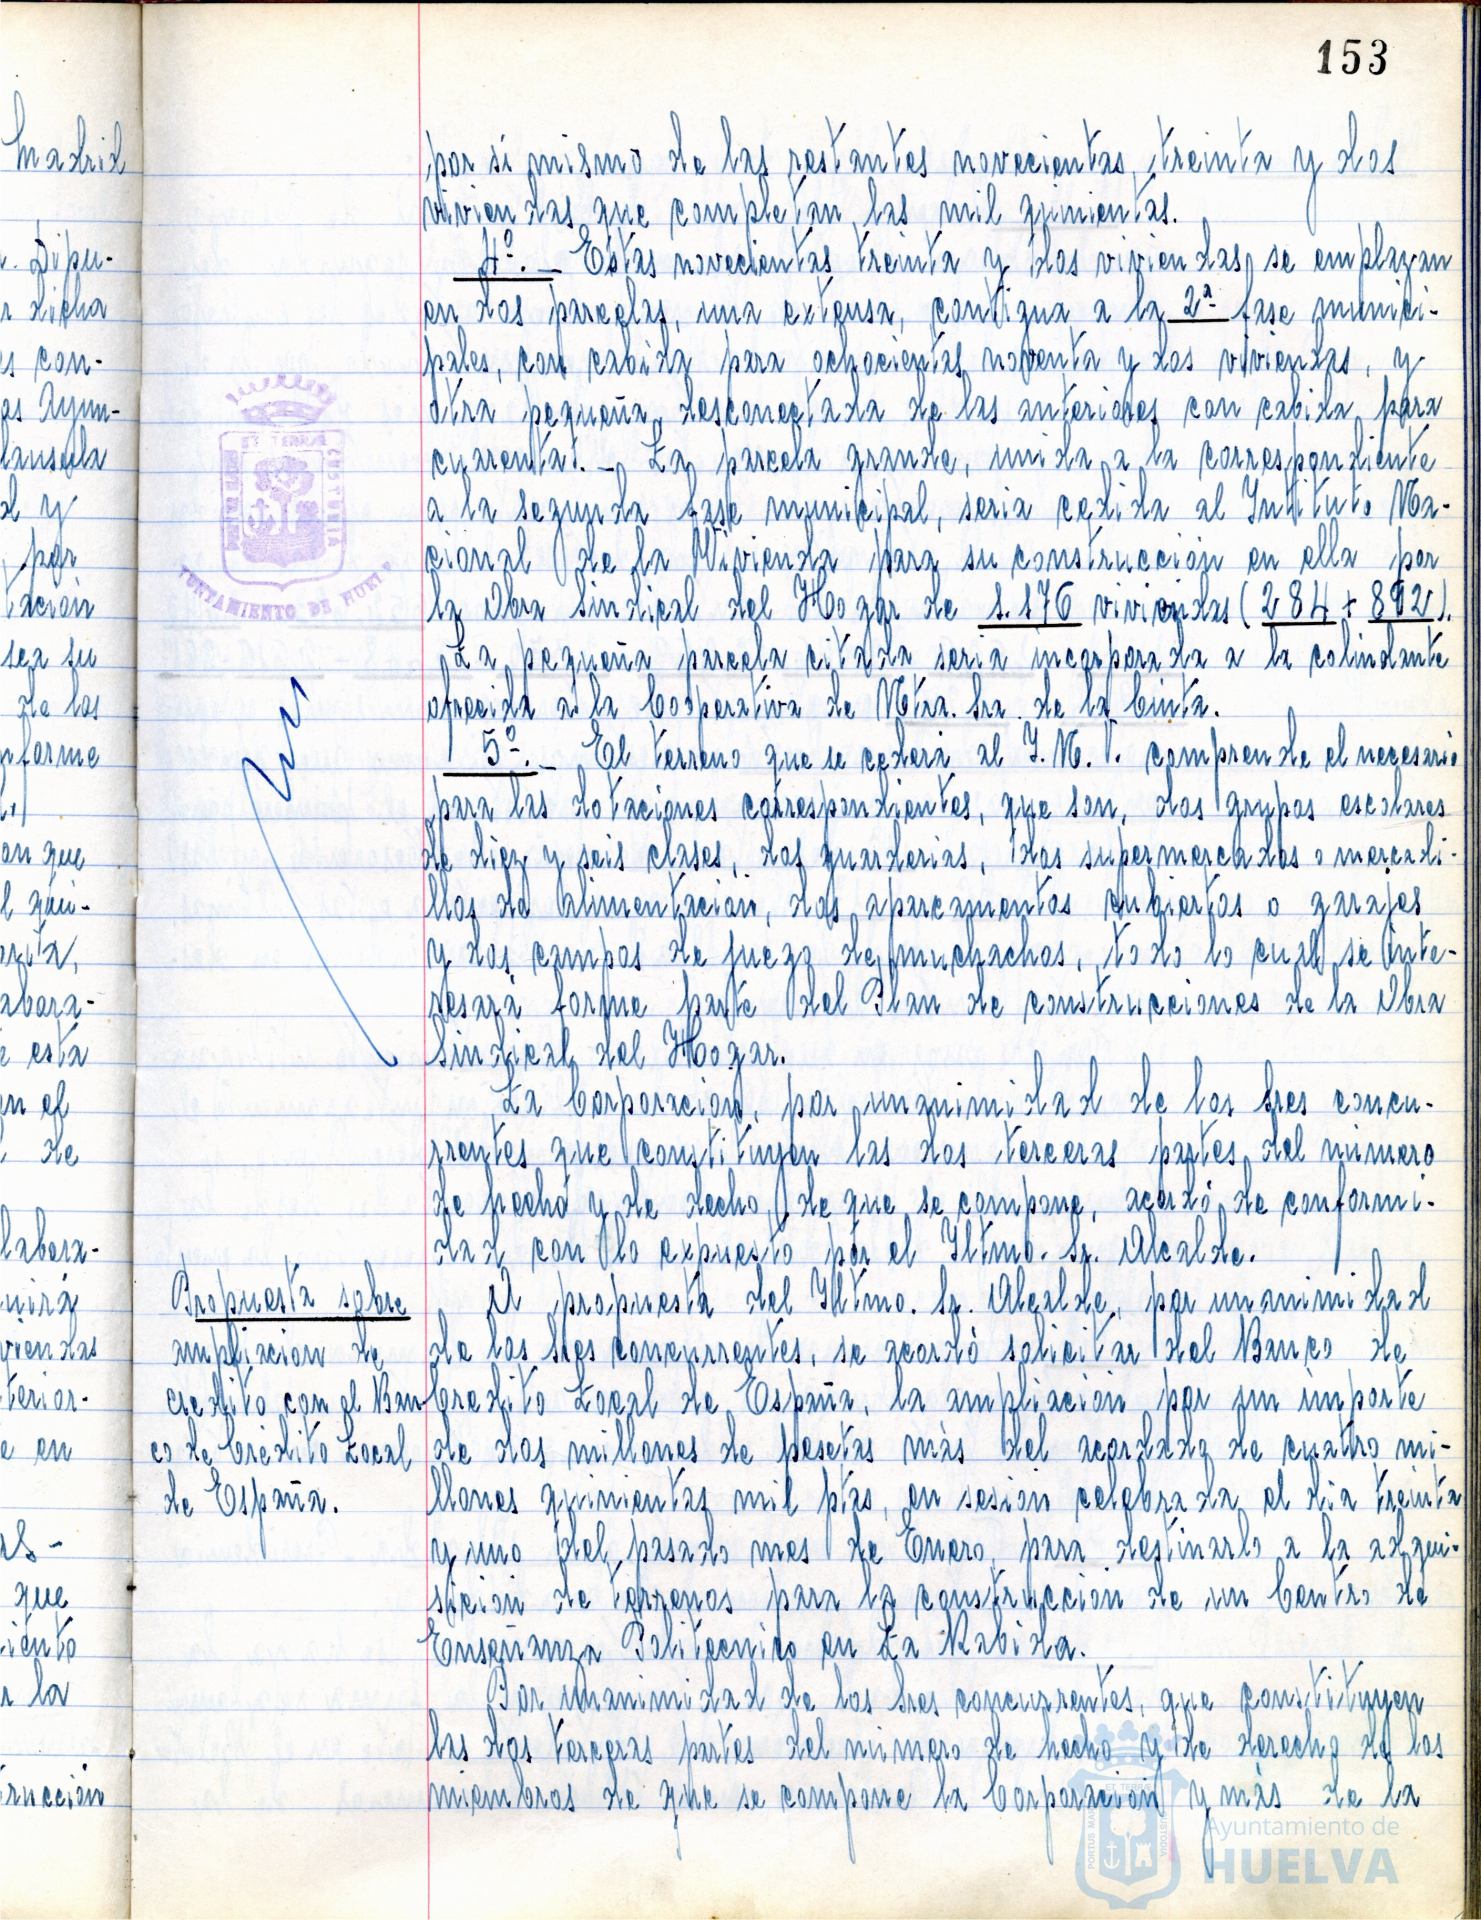 153
Madrid
. Dipu-
r dicha
s con-
os Ayun-
lausula
d y
, por
tación
sea su
de los
nforme
on que
l qui-
abora-
e esta
en el
l de
labora-
uirá
viendas
terior-
e en
as-
que
iento
r la
trucción
por sí mismo de las restantes novecientas, treinta y dos
viviendas que completan las mil quinientas.
4º.- Estas novecientas treinta y dos viviendas, se emplazan
en dos parcelas, una extensa, contigua a la 2ª fase munici-
pales, con cabida para ochocientas noventa y dos viviendas, y
otra pequeña, desconectada de las anteriores con cabida para
cuarenta.- La parcela grande, unida a la correspondiente
a la segunda fase municipal, seria cedida al Intituto Na-
cional de la Vivienda para su construcción en ella por
la Obra Sindical del Hogar de 1.176 viviendas (284 + 892).
La pequeña parcela citada seria incorporada a la colindante
ofrecida a la Cooperativa de Ntra. Sra. de la Cinta.
5º.- El terreno que se cederá al I.N.V. comprende el necesario
para las dotaciones correspondientes, que son, dos grupos escolares
de diez y seis clases, dos guarderias, dos supermercados o mercadi-
llos de alimentación, dos aparcamentos cubiertos o garajes
y dos campos de juego de muchachos, todo lo cual se inte-
resará forme parte del Plan de construcciones de la Obra
Sindical del Hogar.
La Corporación, por unanimidad de los Sres concu-
rrentes que constituyen las dos terceras partes del número
de hecho y de decho, de que se compone, acordó de conformi-
dad con lo expuesto por el Iltmo. Sr. Alcalde.
Propuesta sobre
ampliacion de
credito con el Ban
co de Crédito Local
de España.
A propuesta del Iltmo. Sr. Alcalde, por unanimidad
de los Sres concurrentes, se acordó solicitar del Banco de
Credito Local de España, la ampliación por un importe
de dos millones de pesetas más del acordado de cuatro mi-
llones quinientas mil ptas, en sesión celebrada el día treinta
y uno del pasado mes de Enero, para destinarlo a la adqui-
sición de terrenos para la construcción de un Centro de
Enseñanza Politecnico en La Rabida.
Por unanimidad de los Sres concurrentes, que constituyen
las dos terceras partes del número de hecho y de derecho de los
miembros de que se compone la Corporación y más de la
ET TERRAE
CUSTODIA
PORTUS MARIS
AYUNTAMIENTO DE HUELVA
Ayuntamiento de
HUELVA